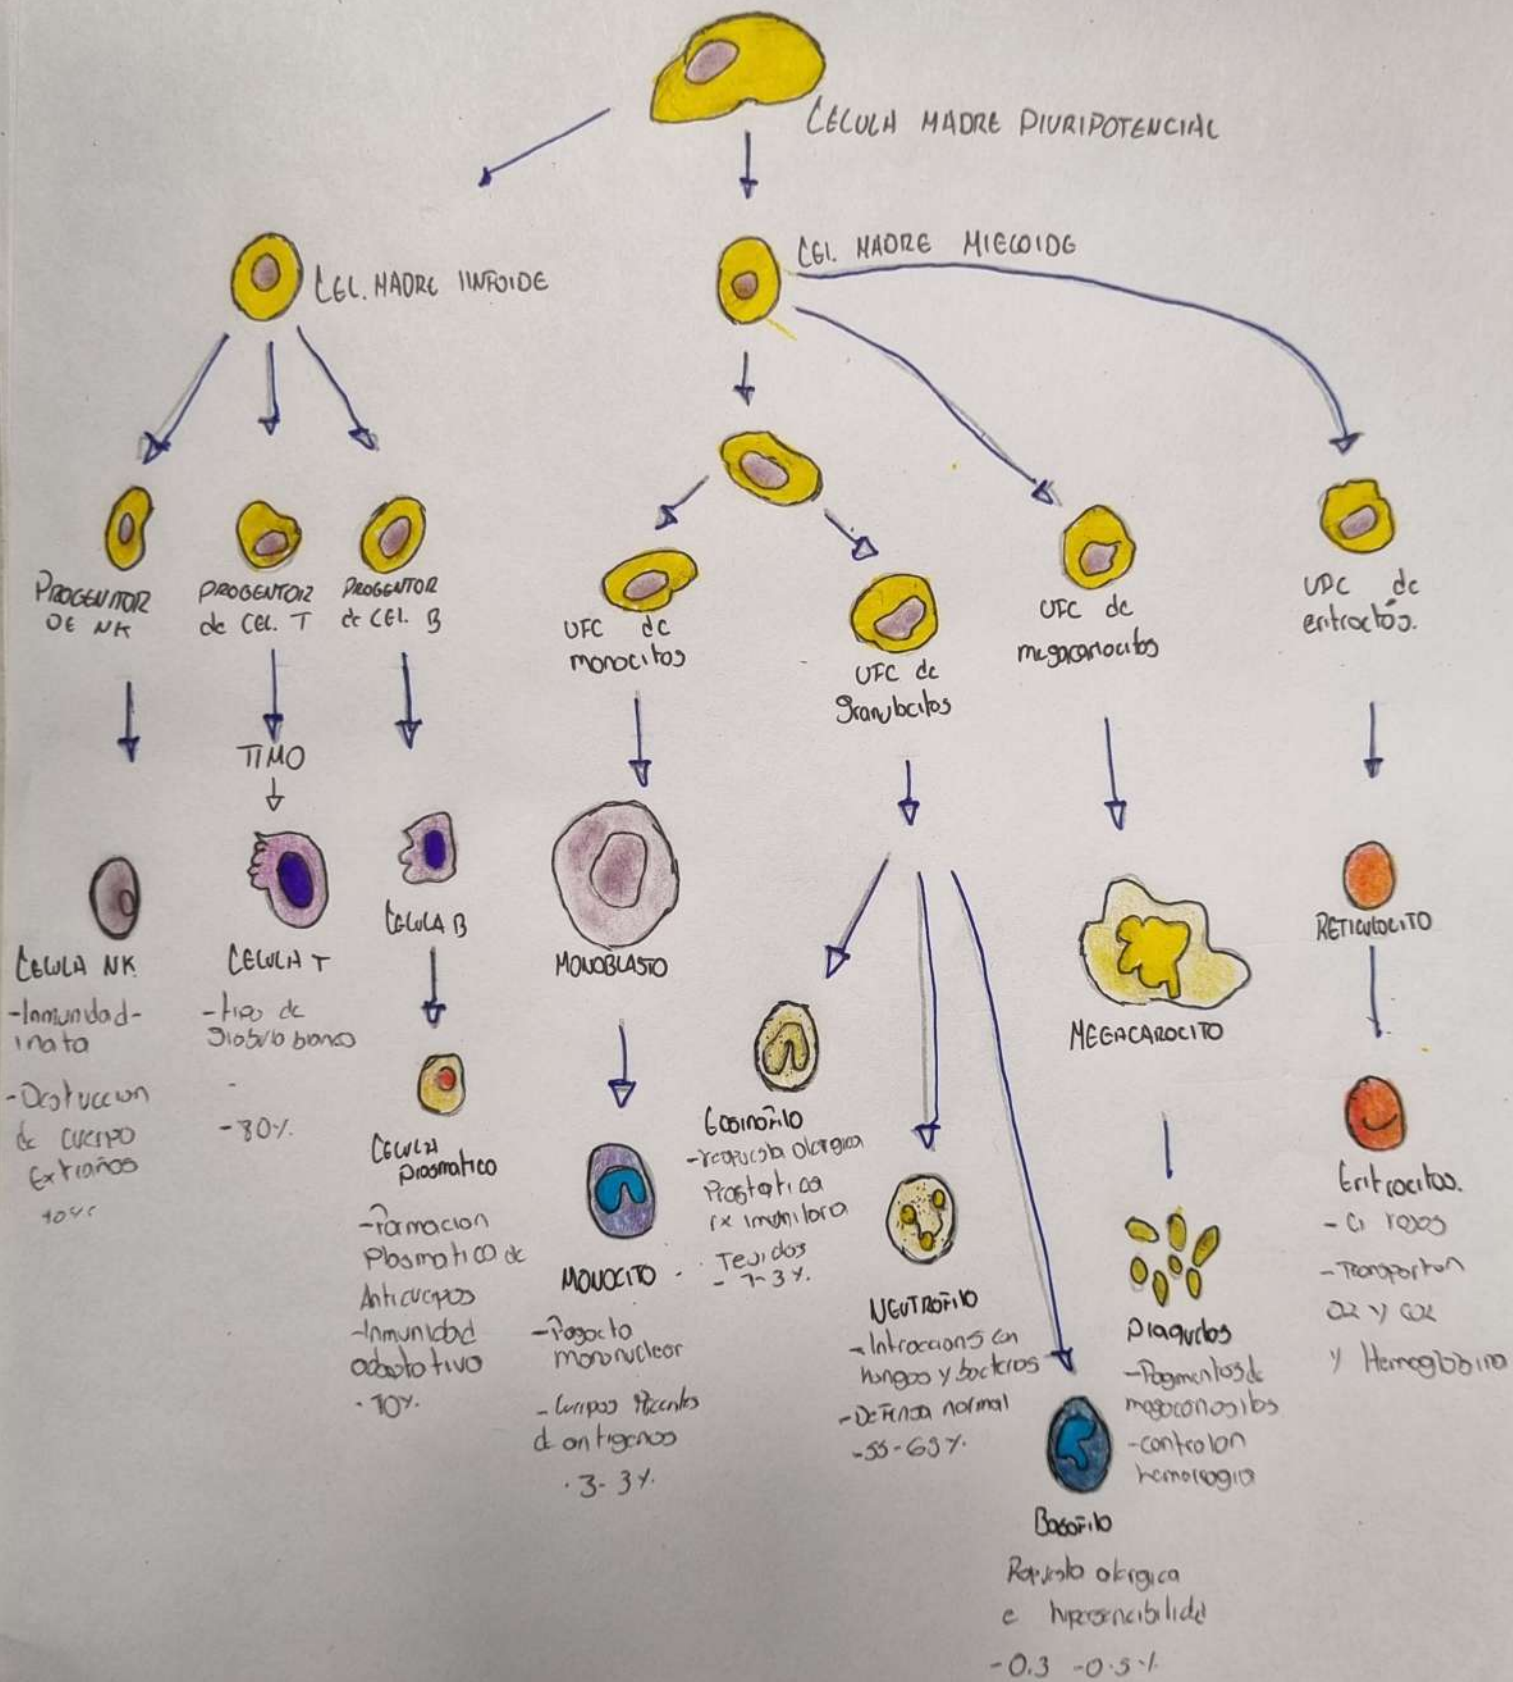 CELULA MADRE PIURIPOTENCIAL
CEL. MADRE IINFOIDE
CEl. MADRE MIELOIDE
PROGENITOR
DE NK
PROGENTOR
de CEL. T
PROGENTOR
de CEl. B
UFC de
monocitos
UFC de
granulocitos
UFC de
megacariocitos
UPC de
eritroctos.
TIMO
CELULA NK
-Inmunidad-
inata
-Destruccion
de cuerpo
Extraños
CELULA T
-tipo de
Globulo blanco
-
-80%
CELULA B
CELULA
plasmatico
-Formacion
Plasmatica de
Anticuerpos
-Inmunidad
adaptativo
-10%.
MONOBLASTO
MONOCITO
-Fagocito
mononuclear
d antigenos
.3-3%.
Eosinofilo
-respuesta alergica
Tejidos
NEUTROFILO
hongos y bacterias
-Defensa normal
Basofilo
alergica
e hipersencibilidad
-0.3 -0.5%
MEGACAROCITO
Plaquetas
-Fragmentos de
-controlan
hemorragia
RETICULOCITO
Eritrocitos.
-Transportan
O2 y CO2
y Hemoglobina